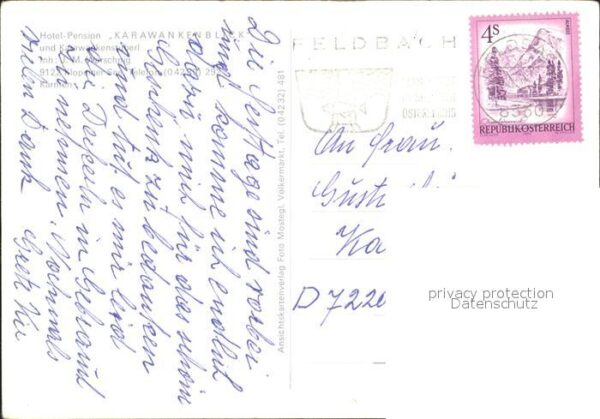 Hotel-Pension „KARAWANKENBLICK"
und Karawankenstüberl
Inh.: J. M. Marschnig
9123 Klopeiner See, Telefon (0 42 39) 29
Kärnten
Die Festtage sind vorbei
nun komme ich endlich
dazu mich für das schöne
Geschenk zu bedanken
tut es mir leid
in Gebrauch
zu nehmen. Nochmals
vielen Dank
Ansichtskartenverlag Foto Mostegl, Völkermarkt, Tel. (04232) 481
FELDBACH
ÖSTERREICHS
4S
REPUBLIK ÖSTERREICH
An Frau
Gusti
Ka
D 7220
privacy protection
Datenschutz